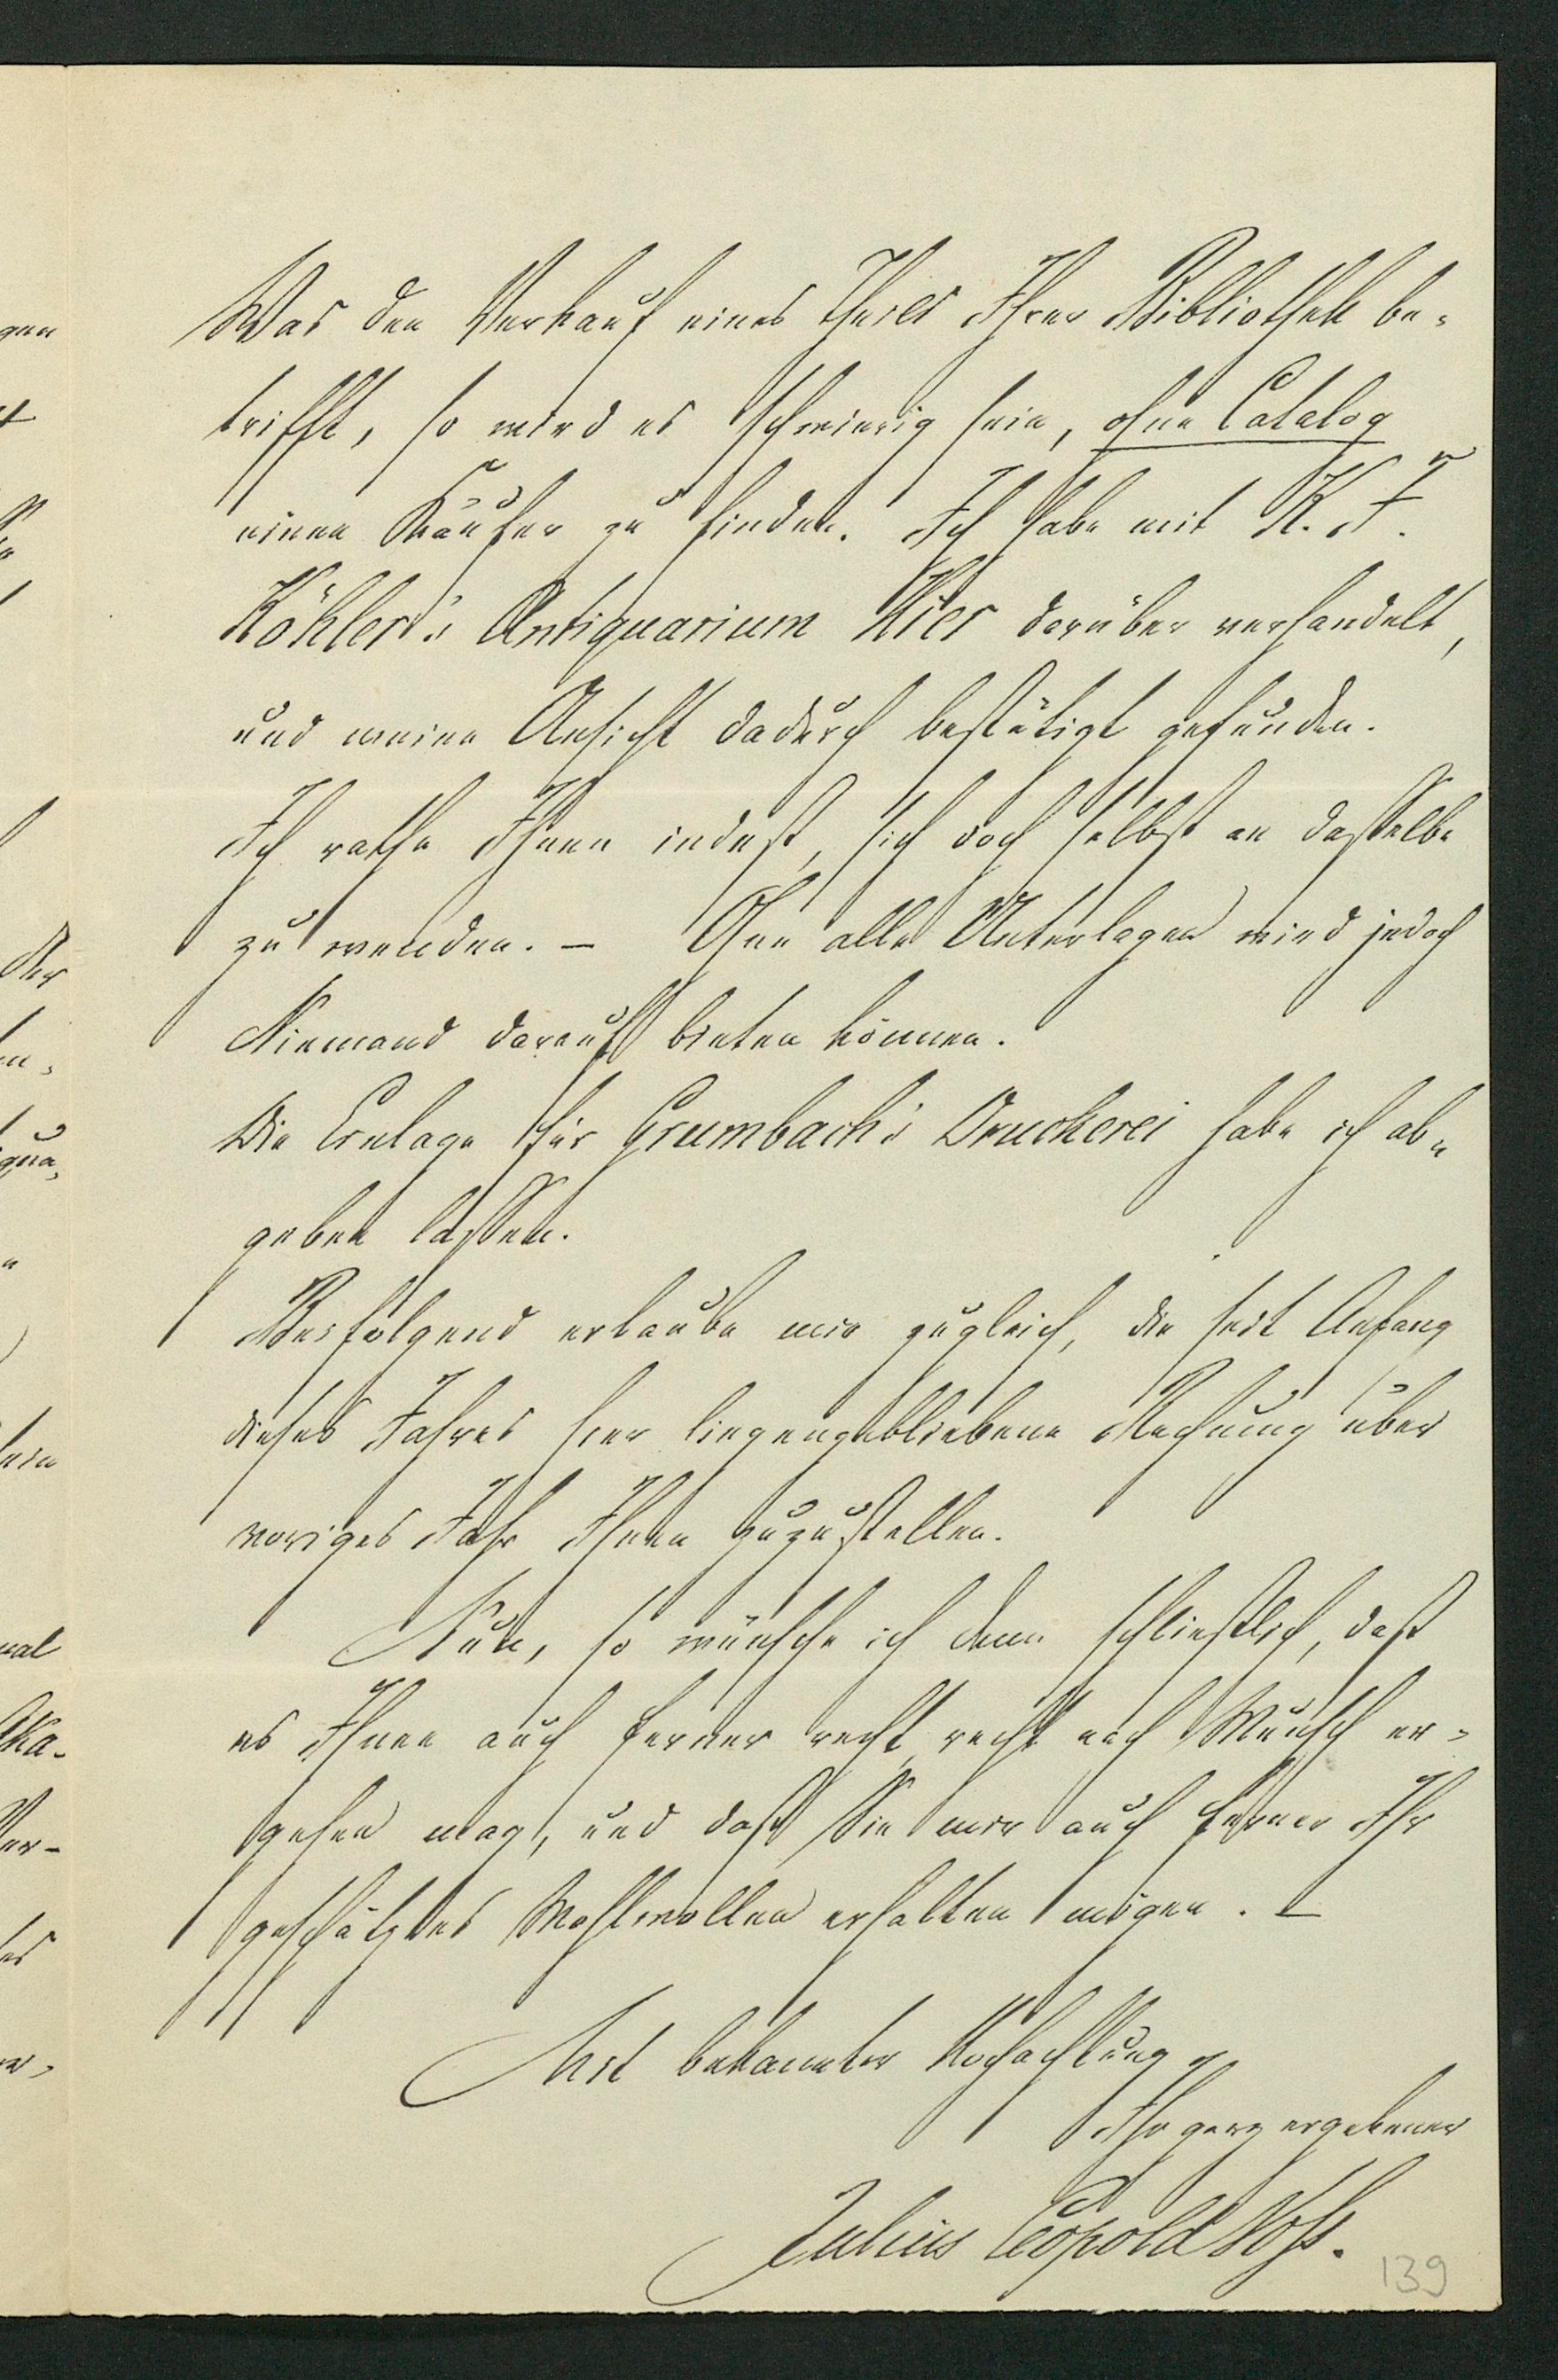 Was den Verkauf eines Theils Ihrer Bibliothek be-
trifft, so wird es schwierig sein, ohne Catalog
einen Käufer zu finden. Ich habe mit K. F.
Köhler's Antiquarium hier darüber verhandelt,
und meine Ansicht dadurch bestätigt gefunden.
Ich rathe Ihnen indeß, sich doch selbst an dasselbe
zu wenden. – Ohne alle Unterlagen wird jedoch
Niemand darauf bieten können.
Die Einlage für Grumbach's Druckerei habe ich ab-
geben lassen.
Beifolgend erlaube mir zugleich, die seit Anfang
dieses Jahres hier liegengebliebene Rechnung über
voriges Jahr Ihnen zuzustellen.
Nun, so wünsche ich denn schließlich, daß
es Ihnen auch ferner recht, recht nach Wunsch er-
gehen mag, und daß Sie mir auch ferner Ihr
geschätztes Wohlwollen erhalten mögen. –
Mit bekannter Hochachtung
Ihr ganz ergebener
Julius Leopold Voß.
139